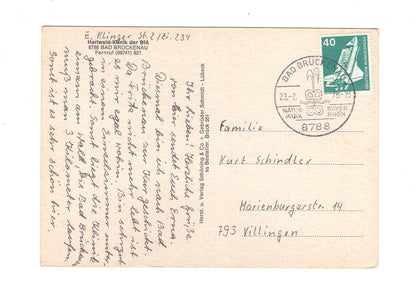 E. Klinger St. 2/Zi. 234
Hartwald-Klinik der BfA
8788 BAD BRÜCKENAU
Fernruf (09741) 821
Ihr Lieben! Herzliche Grüße
von hier sendet Euch Erna.
Diesmal bin ich nach Bad
Brückenau zur Kur geschickt.
Da Fritz nicht mehr lebt ist
es mir egal wohin. Bin sehr gut
in einem Einzelzimmer unter-
gebracht. Sonst liegt die Klinik
einsam am Wald. Bis Bad Brückenau
muß man 3 Kilometer laufen.
Sonst ist es sehr schön hier.
Herst. u. Verlag Schöning & Co + Gebrüder Schmidt - Lübeck
40
DEUTSCHE BUNDESPOST
BAD BRÜCKENAU
23.-2.
NATUR
PARK
BAYER.
RHÖN
8788
Familie
Kurt Schindler
Marienburgerstr. 14
7793 Villingen